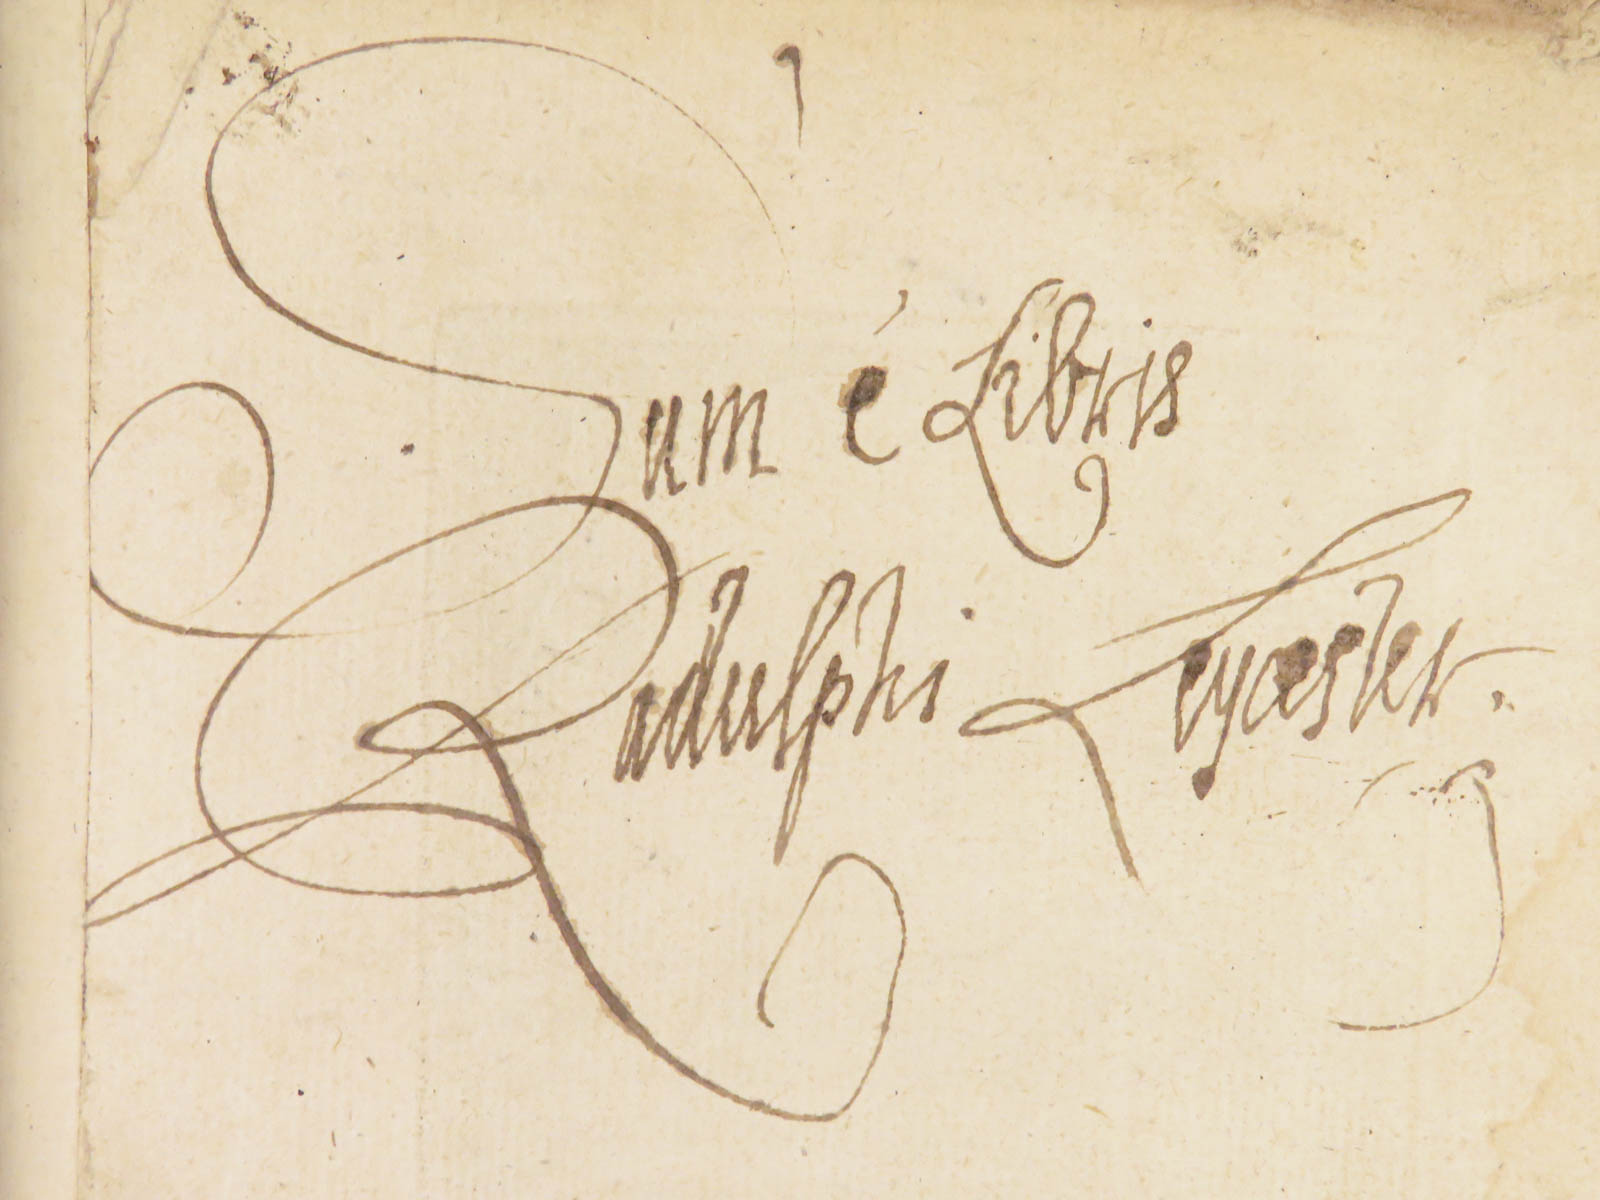 Sum é Libris
Radulphi Leycester.